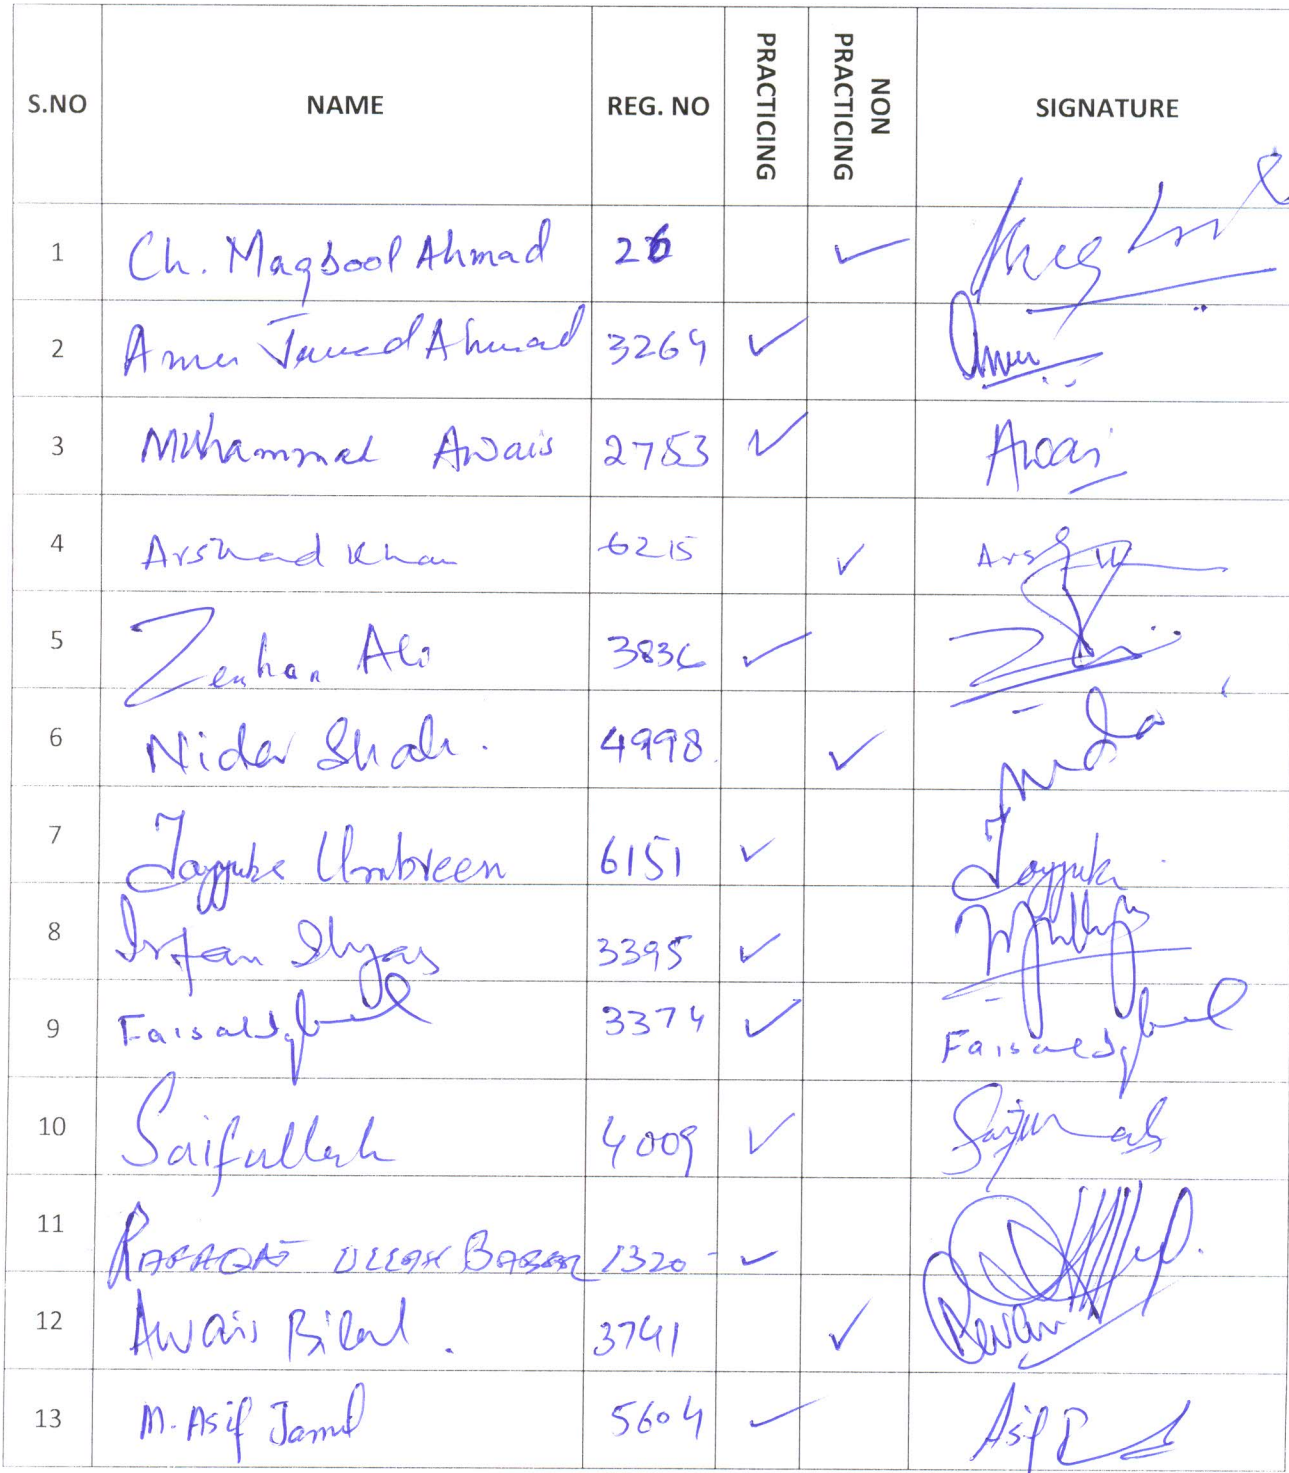 S.NO NAME REG. NO PRACTICING NON PRACTICING SIGNATURE
1 Ch. Maqbool Ahmad 26 ✓
2 Amer Javed Ahmad 3264 ✓ Amer
3 Muhammad Awais 2753 ✓ Awais
4 Arshad Khan 6215 ✓
5 Ali 3836 ✓
6 Nida Shah. 4998 ✓ Nida
7 Tayyuba Umbreen 6151 ✓ Tayyuba
8 Irfan Ilyas 3395 ✓
9 Faisal Iqbal 3374 ✓ Faisal Iqbal
10 Saifullah 4009 ✓
11 RAFAQAT ULLAH BABAR 1320 ✓
12 Awais Bilal. 3741 ✓
13 M. Asif Jamil 5604 ✓ Asif